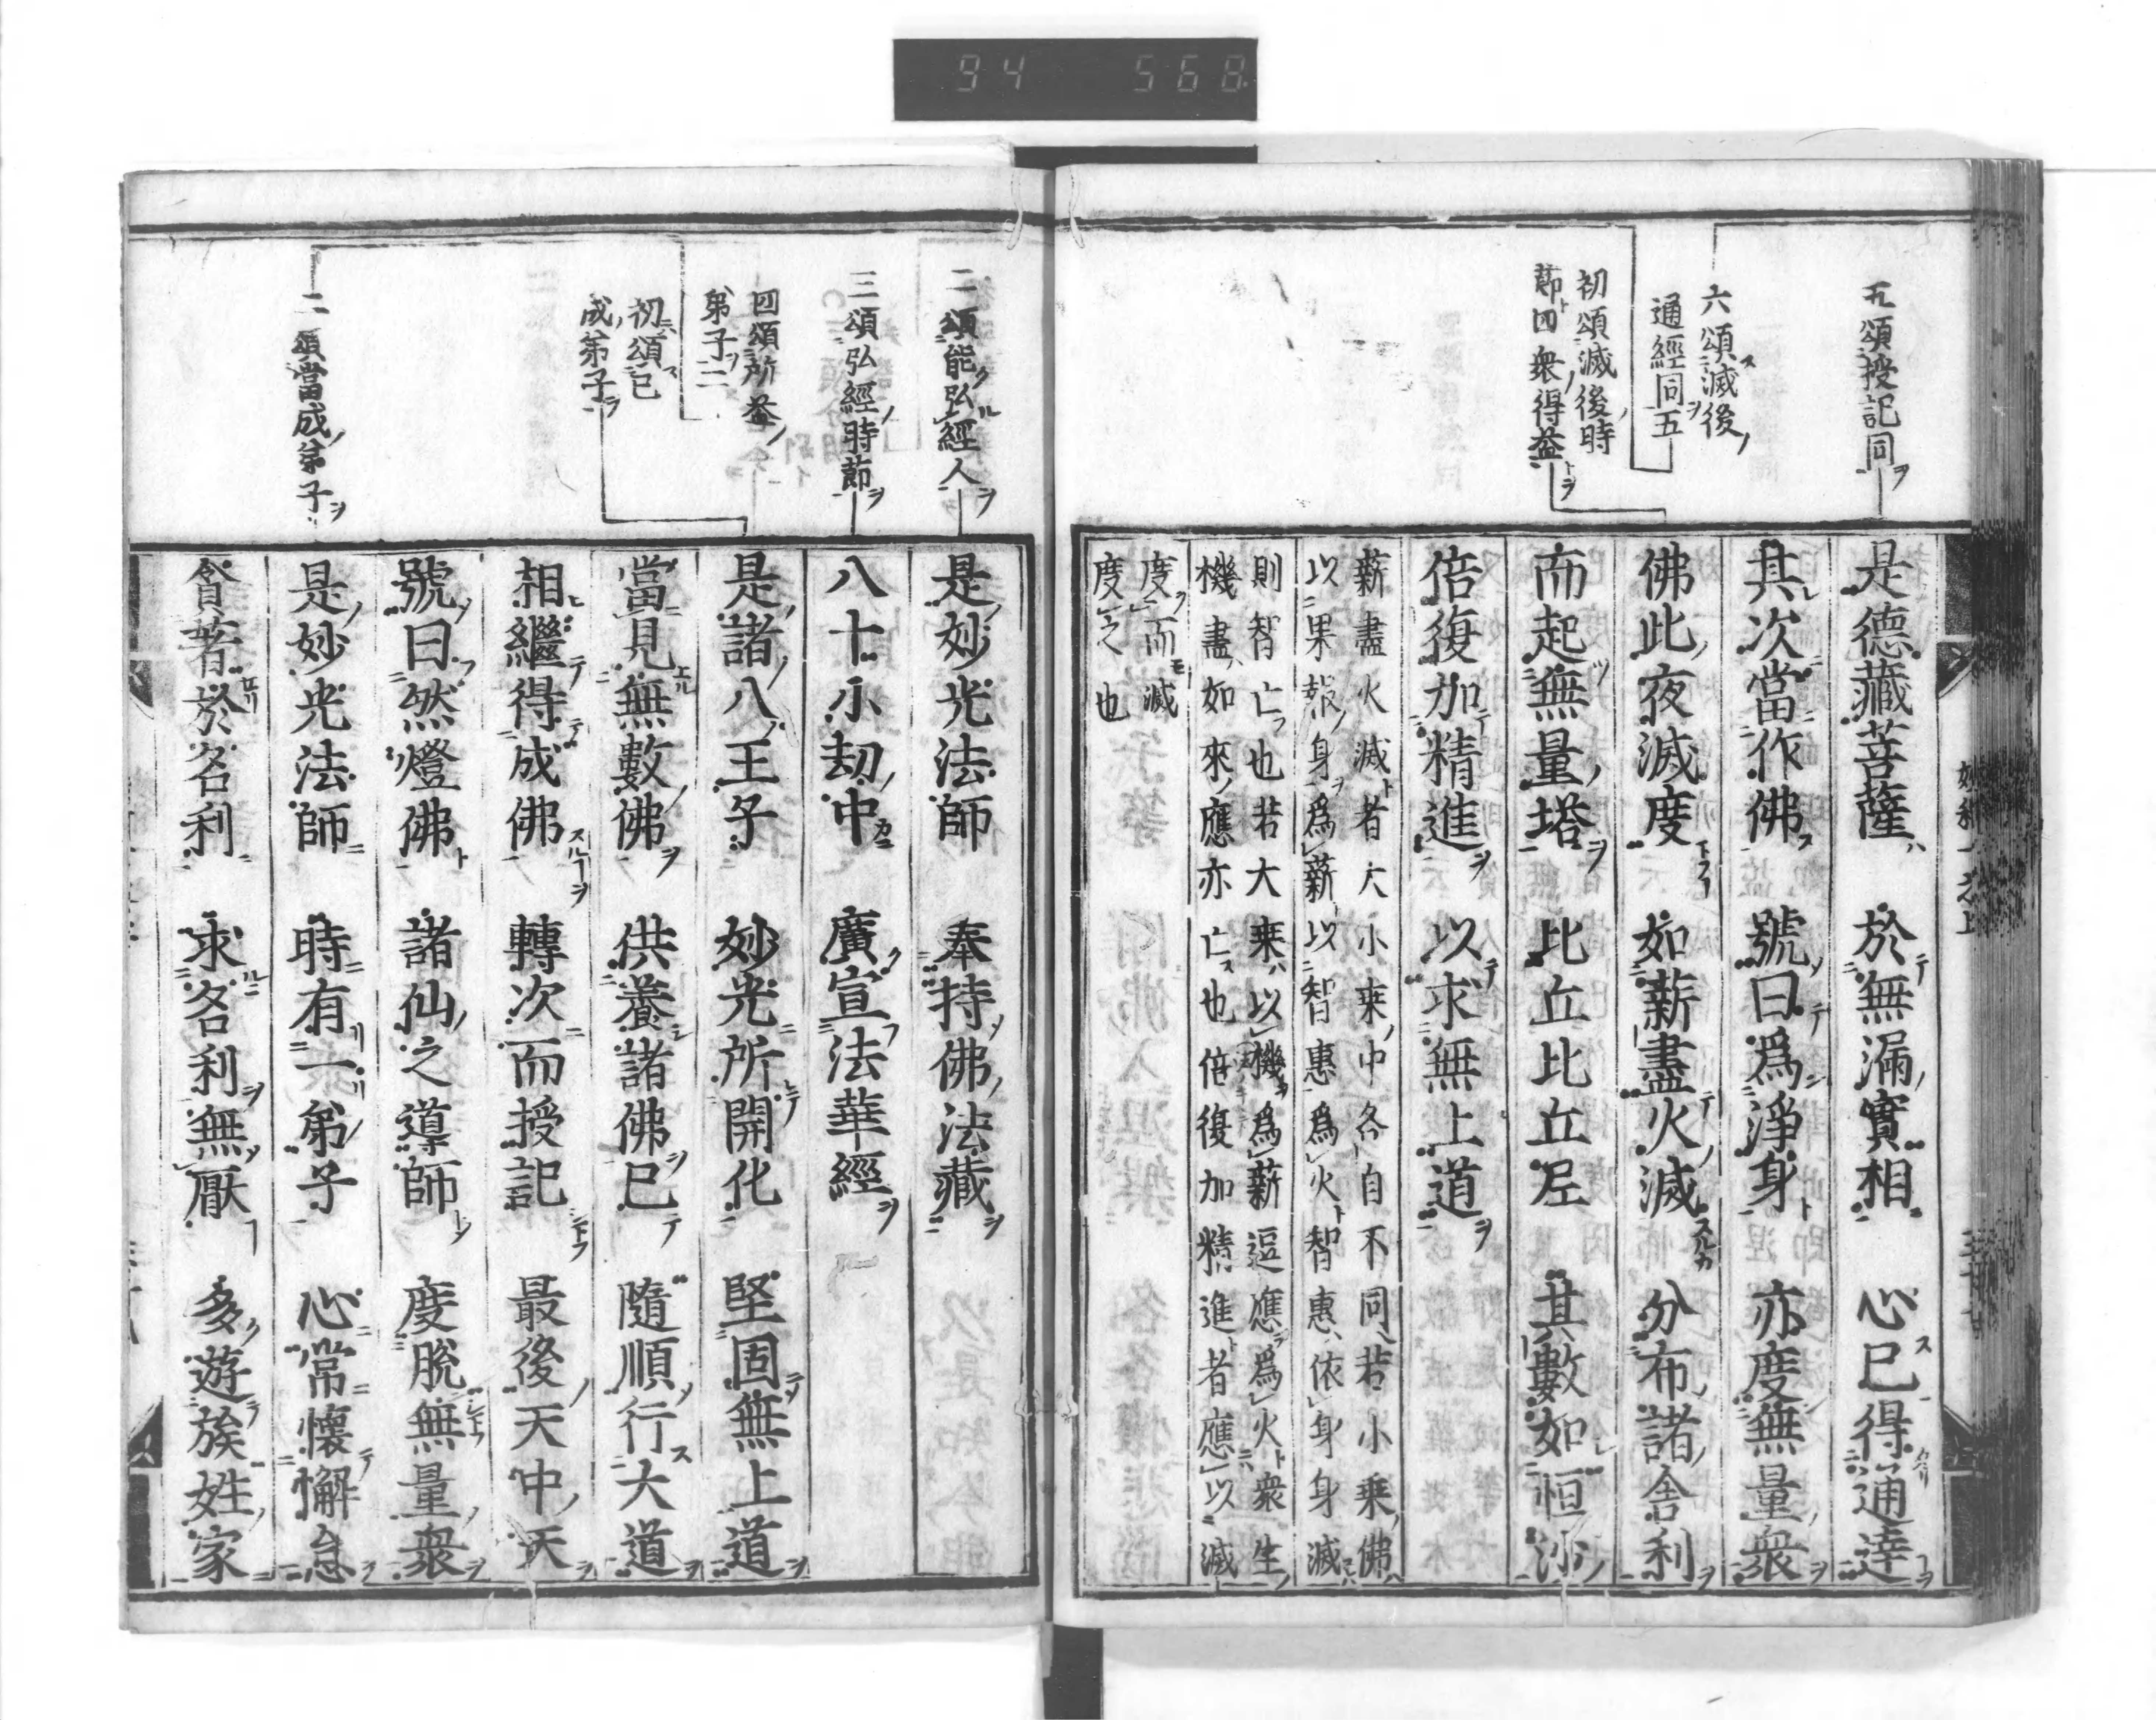 94 568
五頌授記同
六頌滅後
通經同五
初頌滅後時
節四衆得益
是德藏菩薩 於無漏實相 心已得通達
其次當作佛 號曰爲淨身 亦度無量衆
佛此夜滅度 如薪盡火滅 分布諸舍利
而起無量塔 比丘比丘尼 其數如恒沙
倍復加精進 以求無上道
薪盡火滅者大小乘中各自不同若小乘佛
以果報身爲薪以智惠爲火智惠依身身滅
則智亡也若大乘以機爲薪逗應爲火衆生
機盡如來應亦亡也倍復加精進者應以滅
度而滅
度之也
二頌能弘經人
三頌弘經時節
四頌所益
弟子二
初頌已
成弟子
二頌當成弟子
是妙光法師 奉持佛法藏
八十小劫中 廣宣法華經
是諸八王子 妙光所開化 堅固無上道
當見無數佛 供養諸佛已 隨順行大道
相繼得成佛 轉次而授記 最後天中天
號曰然燈佛 諸仙之導師 度脫無量衆
是妙光法師 時有一弟子 心常懷懈怠
貪著於名利 求名利無厭 多遊族姓家